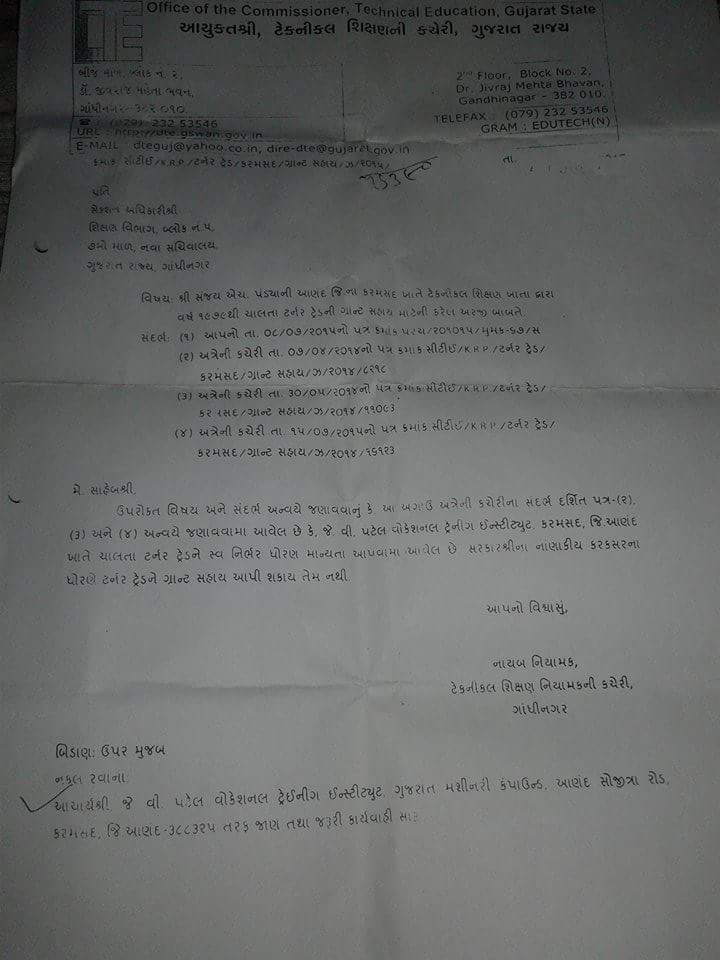 Office of the Commissioner, Technical Education, Gujarat State
આયુક્તશ્રી, ટેકનીકલ શિક્ષણની કચેરી, ગુજરાત રાજ્ય
બીજો માળ, બ્લોક નં. ૨,
ડૉ. જીવરાજ મહેતા ભવન,
ગાંધીનગર-૩૮૨ ૦૧૦.
☎ : (079) 232 53546
URL : http://dte.gswan.gov.in
E-MAIL : dteguj@yahoo.co.in, dire-dte@gujaret.gov.in
2nd Floor, Block No. 2,
Dr. Jivraj Mehta Bhavan,
Gandhinagar - 382 010.
TELEFAX : (079) 232 53546
GRAM : EDUTECH(N)
ક્રમાંક સીટીઈ/KRP/ટર્નર ટ્રેડ/કરમસદ/ગ્રાન્ટ સહાય/ઝ/૨૦૧૫/
તા.
પ્રતિ
સેક્શન અધિકારીશ્રી
શિક્ષણ વિભાગ, બ્લોક નં.૫,
૭મો માળ, નવા સચિવાલય,
ગુજરાત રાજ્ય, ગાંધીનગર
વિષય: શ્રી સંજય એચ. પંડ્યાની આણંદ જિ.ના કરમસદ ખાતે ટેકનીકલ શિક્ષણ ખાતા દ્વારા
વર્ષ ૧૯૭૯થી ચાલતા ટર્નર ટ્રેડની ગ્રાન્ટ સહાય માટેની કરેલ અરજી બાબતે.
સંદર્ભ: (૧) આપનો તા. ૦૮/૦૭/૨૦૧૫નો પત્ર ક્રમાંક પરચ/૨૦૧૦૧૫/મુમક-૬૭/સ
(૨) અત્રેની કચેરી તા. ૦૭/૦૪/૨૦૧૪નો પત્ર ક્રમાંક સીટીઈ/KRP/ટર્નર ટ્રેડ/
કરમસદ/ગ્રાન્ટ સહાય/ઝ/૨૦૧૪/૮૨૧૮
(૩) અત્રેની કચેરી તા. ૩૦/૦૫/૨૦૧૪નો પત્ર ક્રમાંક સીટીઈ/KRP/ટર્નર ટ્રેડ/
કરમસદ/ગ્રાન્ટ સહાય/ઝ/૨૦૧૪/૧૧૦૯૩
(૪) અત્રેની કચેરી તા. ૧૫/૦૭/૨૦૧૫નો પત્ર ક્રમાંક સીટીઈ/KRP/ટર્નર ટ્રેડ/
કરમસદ/ગ્રાન્ટ સહાય/ઝ/૨૦૧૪/૧૬૧૨૩
મે. સાહેબશ્રી,
ઉપરોક્ત વિષય અને સંદર્ભ અન્વયે જણાવવાનું કે, આ અગાઉ અત્રેની કચેરીના સંદર્ભ દર્શિત પત્ર-(૨),
(૩) અને (૪) અન્વયે જણાવવામાં આવેલ છે કે, જે. વી. પટેલ વોકેશનલ ટ્રેનીંગ ઈન્સ્ટીટ્યુટ, કરમસદ, જિ.આણંદ
ખાતે ચાલતા ટર્નર ટ્રેડને સ્વ નિર્ભર ધોરણે માન્યતા આપવામાં આવેલ છે. સરકારશ્રીના નાણાકીય કરકસરના
ધોરણે ટર્નર ટ્રેડને ગ્રાન્ટ સહાય આપી શકાય તેમ નથી.
આપનો વિશ્વાસુ,
નાયબ નિયામક,
ટેકનીકલ શિક્ષણ નિયામકની કચેરી,
ગાંધીનગર
બિડાણ: ઉપર મુજબ
નકલ રવાના:
આચાર્યશ્રી જે. વી. પટેલ વોકેશનલ ટ્રેઈનીંગ ઈન્સ્ટીટ્યુટ, ગુજરાત મશીનરી કંપાઉન્ડ, આણંદ સોજીત્રા રોડ,
કરમસદ, જિ.આણંદ-૩૮૮૩૨૫ તરફ જાણ તથા જરૂરી કાર્યવાહી સારૂ